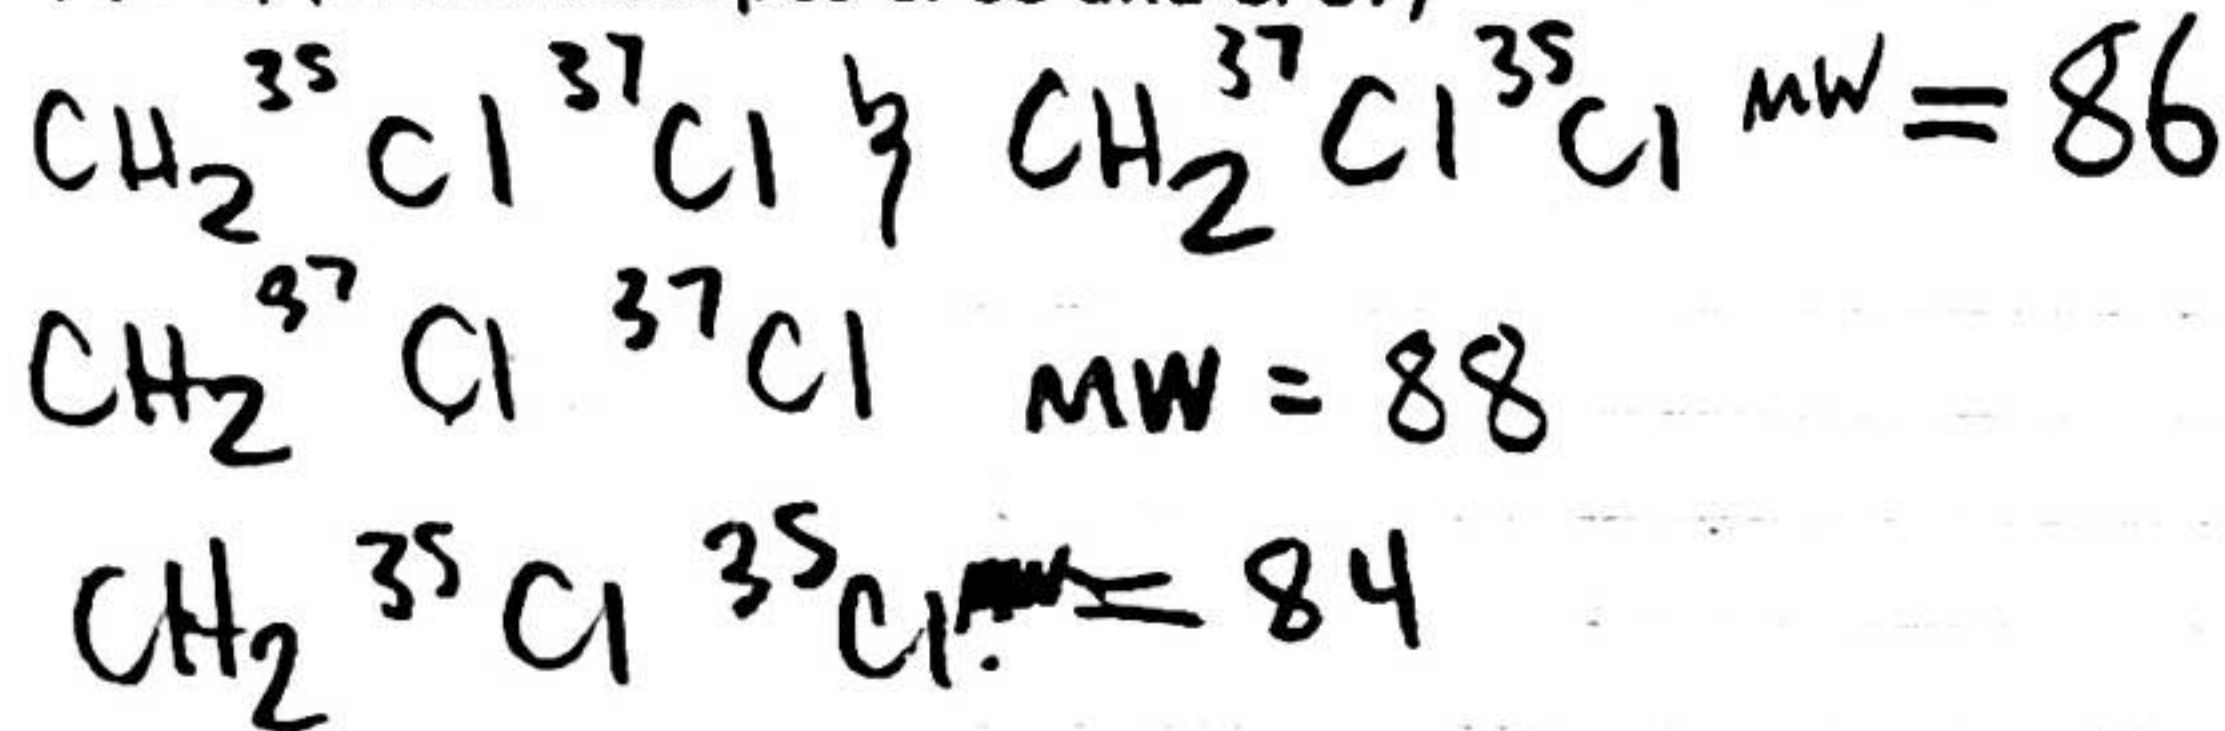 CH₂ ³⁵Cl ³⁷Cl & CH₂ ³⁷Cl ³⁵Cl MW = 86
CH₂ ³⁷Cl ³⁷Cl MW = 88
CH₂ ³⁵Cl ³⁵Cl = 84